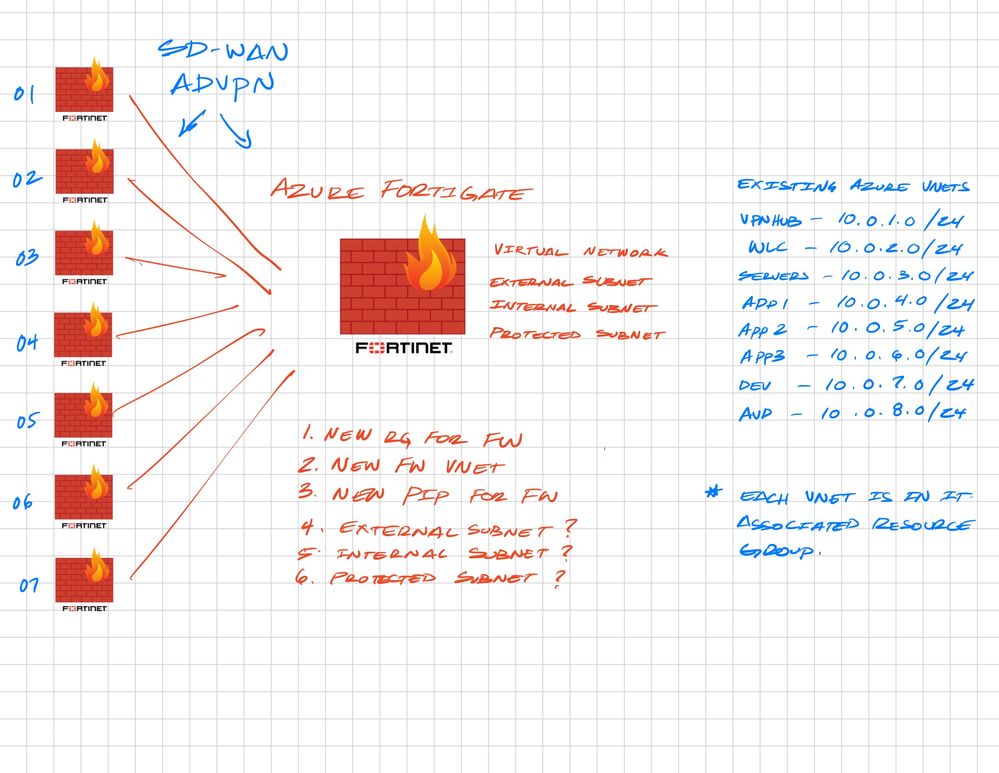 SD-WAN
ADVPN
01
FORTINET
02
FORTINET
03
FORTINET
04
FORTINET
05
FORTINET
06
FORTINET
07
FORTINET
AZURE FORTIGATE
FORTINET
VIRTUAL NETWORK
EXTERNAL SUBNET
INTERNAL SUBNET
PROTECTED SUBNET
1. NEW RG FOR FW
2. NEW FW VNET
3. NEW PIP FOR FW
4. EXTERNAL SUBNET ?
5. INTERNAL SUBNET ?
6. PROTECTED SUBNET ?
EXISTING AZURE VNETS
VPNHUB - 10.0.1.0/24
WLC - 10.0.2.0/24
SERVERS - 10.0.3.0/24
APP1 - 10.0.4.0/24
APP2 - 10.0.5.0/24
APP3 - 10.0.6.0/24
DEV - 10.0.7.0/24
AVD - 10.0.8.0/24
* EACH VNET IS IN IT
ASSOCIATED RESOURCE
GROUP.